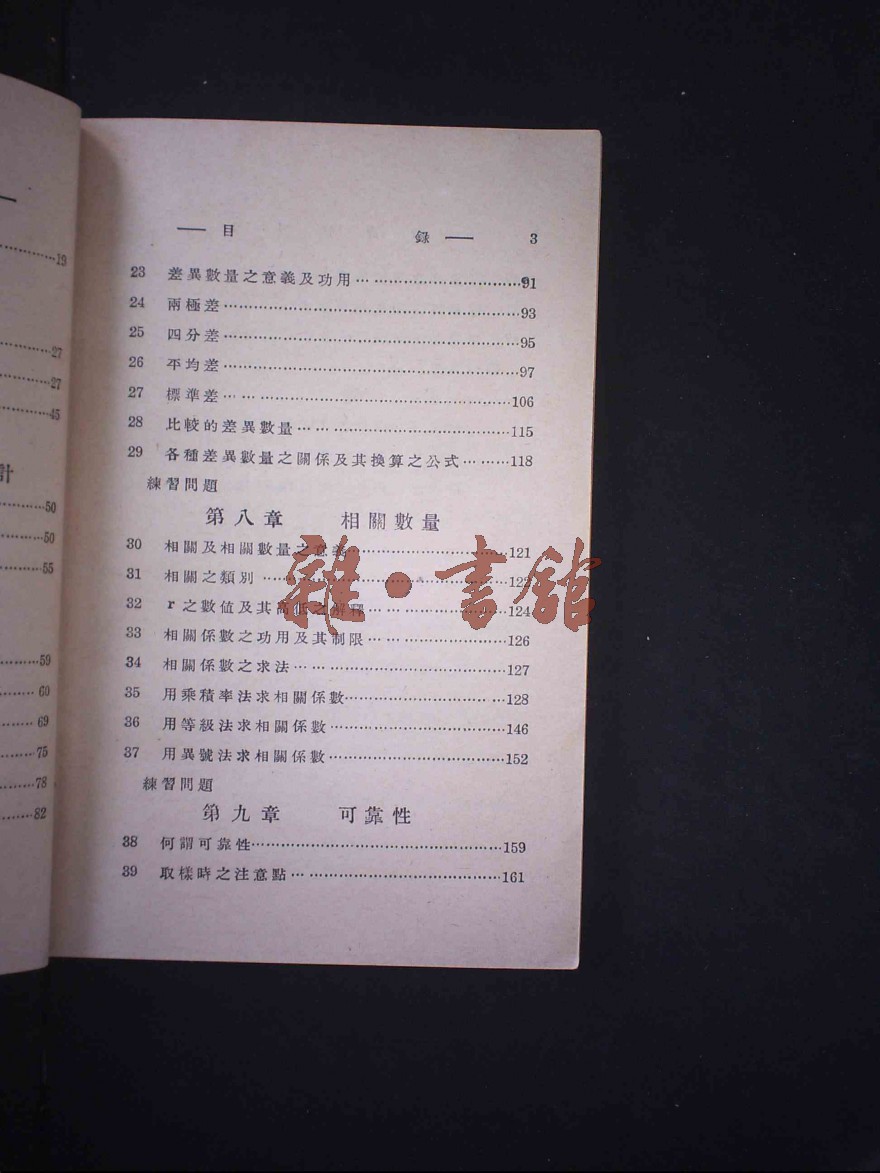 — 目 錄 — 3
23 差異數量之意義及功用………………………91
24 兩極差………………………………………93
25 四分差………………………………………95
26 平均差………………………………………97
27 標準差………………………………………106
28 比較的差異數量……………………………115
29 各種差異數量之關係及其換算之公式………118
練習問題
第八章 相關數量
30 相關及相關數量之意義……………………121
31 相關之類別…………………………………122
32 r之數值及其高低之解釋……………………124
33 相關係數之功用及其制限…………………126
34 相關係數之求法……………………………127
35 用乘積率法求相關係數……………………128
36 用等級法求相關係數………………………146
37 用異號法求相關係數………………………152
練習問題
第九章 可靠性
38 何謂可靠性…………………………………159
39 取樣時之注意點……………………………161
雜·書館
—
………19
………27
………27
………45
計
………50
………50
………55
………59
………60
………69
………75
………78
………82